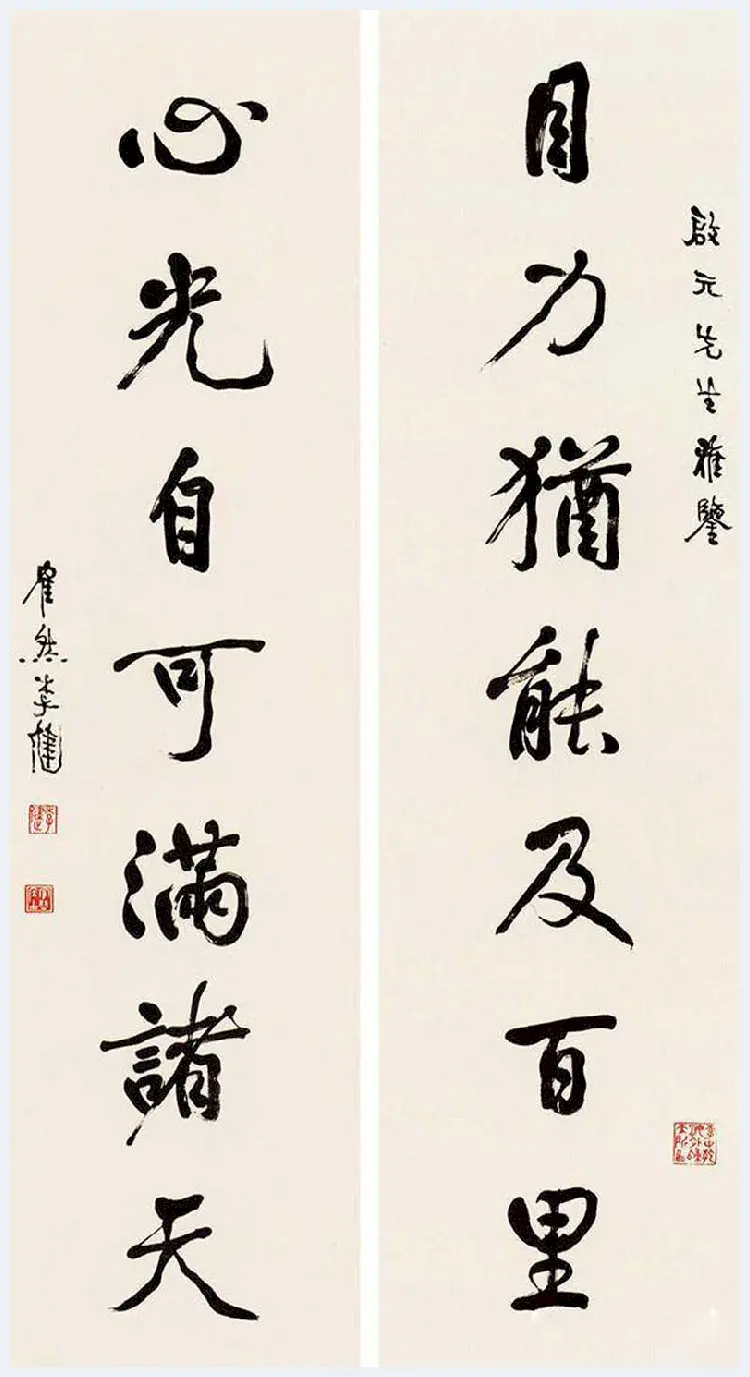 啟元先生雅鑒
目力猶能及百里
心光自可滿諸天
隺然李健
李健